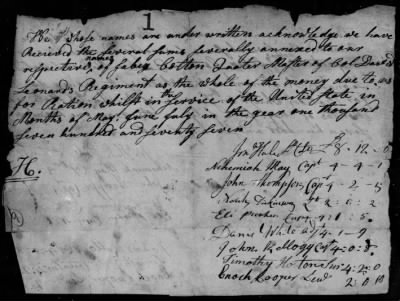 1
We whose names are under written acknowledge we have
Recieved the several sums severally annexed to our
names
respective, of Cotton Quater Master of Col David
Leonards Regiment as the whole of the money due to us
for Ration whilst in the Service of the United State in
Months of May June July in the year one thousand
seven hundred and seventy seven
Jon Hale £8-12-0
H.
Nehemiah May Capt 4-4-1
John Thompson Capt 4-2-5
Noah Lt 2-0-2
Eli Parker 4:0:5
Daniel White 4-1-9
John Kellogg Capt 4:0:8
Timothy 4:2:0
Enoch Cooper Lew 2:0:10